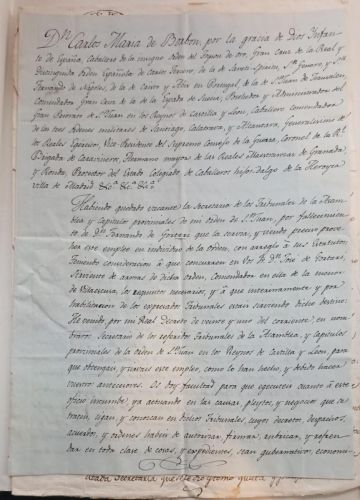 Dn. Carlos Maria de Borbon, por la gracia de Dios Infan-
te de España, Caballero de la insigne orden del Toyson de oro, Gran Cruz de la Real y
Distinguida orden Española de Carlos tercero, de la de Sancti Spiritus, Sn. Genaro, y Sn.
Fernando de Napoles, de la de Cristo y Avis en Portugal, de la de Sn. Juan de Jerusalen,
Comendador Gran Cruz de la de la Espada de Suecia, Perpetuo Administrador del
Gran Priorato de Sn. Juan en los Reynos de Castilla y Leon, Caballero comendador
de las tres ordenes militares de Santiago, Calatrava, y Alcantara, Generalisimo de
los Reales Egercitos, Vice-Presidente del Supremo Consejo de la Guerra, Coronel de la Rl.
Brigada de Carabineros, Hermano mayor de las Reales Maestranzas de Granada
y Ronda, Protector del Estado Colegiado de Caballeros hijos-dalgo de la Heroyca
villa de Madrid &ca. &ca. &ca.
Habiendo quedado vacante la Secretaria de los Tribunales de la Asam-
blea y Capitulos provinciales de mi orden de Sn. Juan, por fallecimien-
to de Dn. Fernando de que la servia, y siendo preciso prove-
her este empleo en individuo de la orden, con arreglo à sus Estatutos:
Teniendo consideracion à que concurren en Vos Fr. Dn. José de
Sirviente de armas de dicha orden, Comendador en ella de la menor
de Villaescusa, los requisitos necesarios, y à que interinamente y por
habilitacion de los expresados Tribunales estais sirviendo dicho destino:
He venido, por mi Real Decreto de veinte y uno del corriente en nom-
braros Secretario de los referidos Tribunales de la Asamblea, y Capitulos
provinciales de la orden de Sn. Juan en los Reynos de Castilla y Leon para
que obtengais, y sirvais este empleo, como lo han hecho, y debido hacer
vuestros antecesores. Os doy facultad para que egecuteis cuanto à este
oficio incumbe, ya actuando en las causas, pleytos, y negocios que se
traten, sigan, y conozcan en dichos Tribunales, cuyos decretos, despachos,
acuerdos, y ordenes habeis de autorizar, firmar, y refren-
dar en toda clase de cosas, y expedientes, sean gubernativos, economi-
Secretaria que